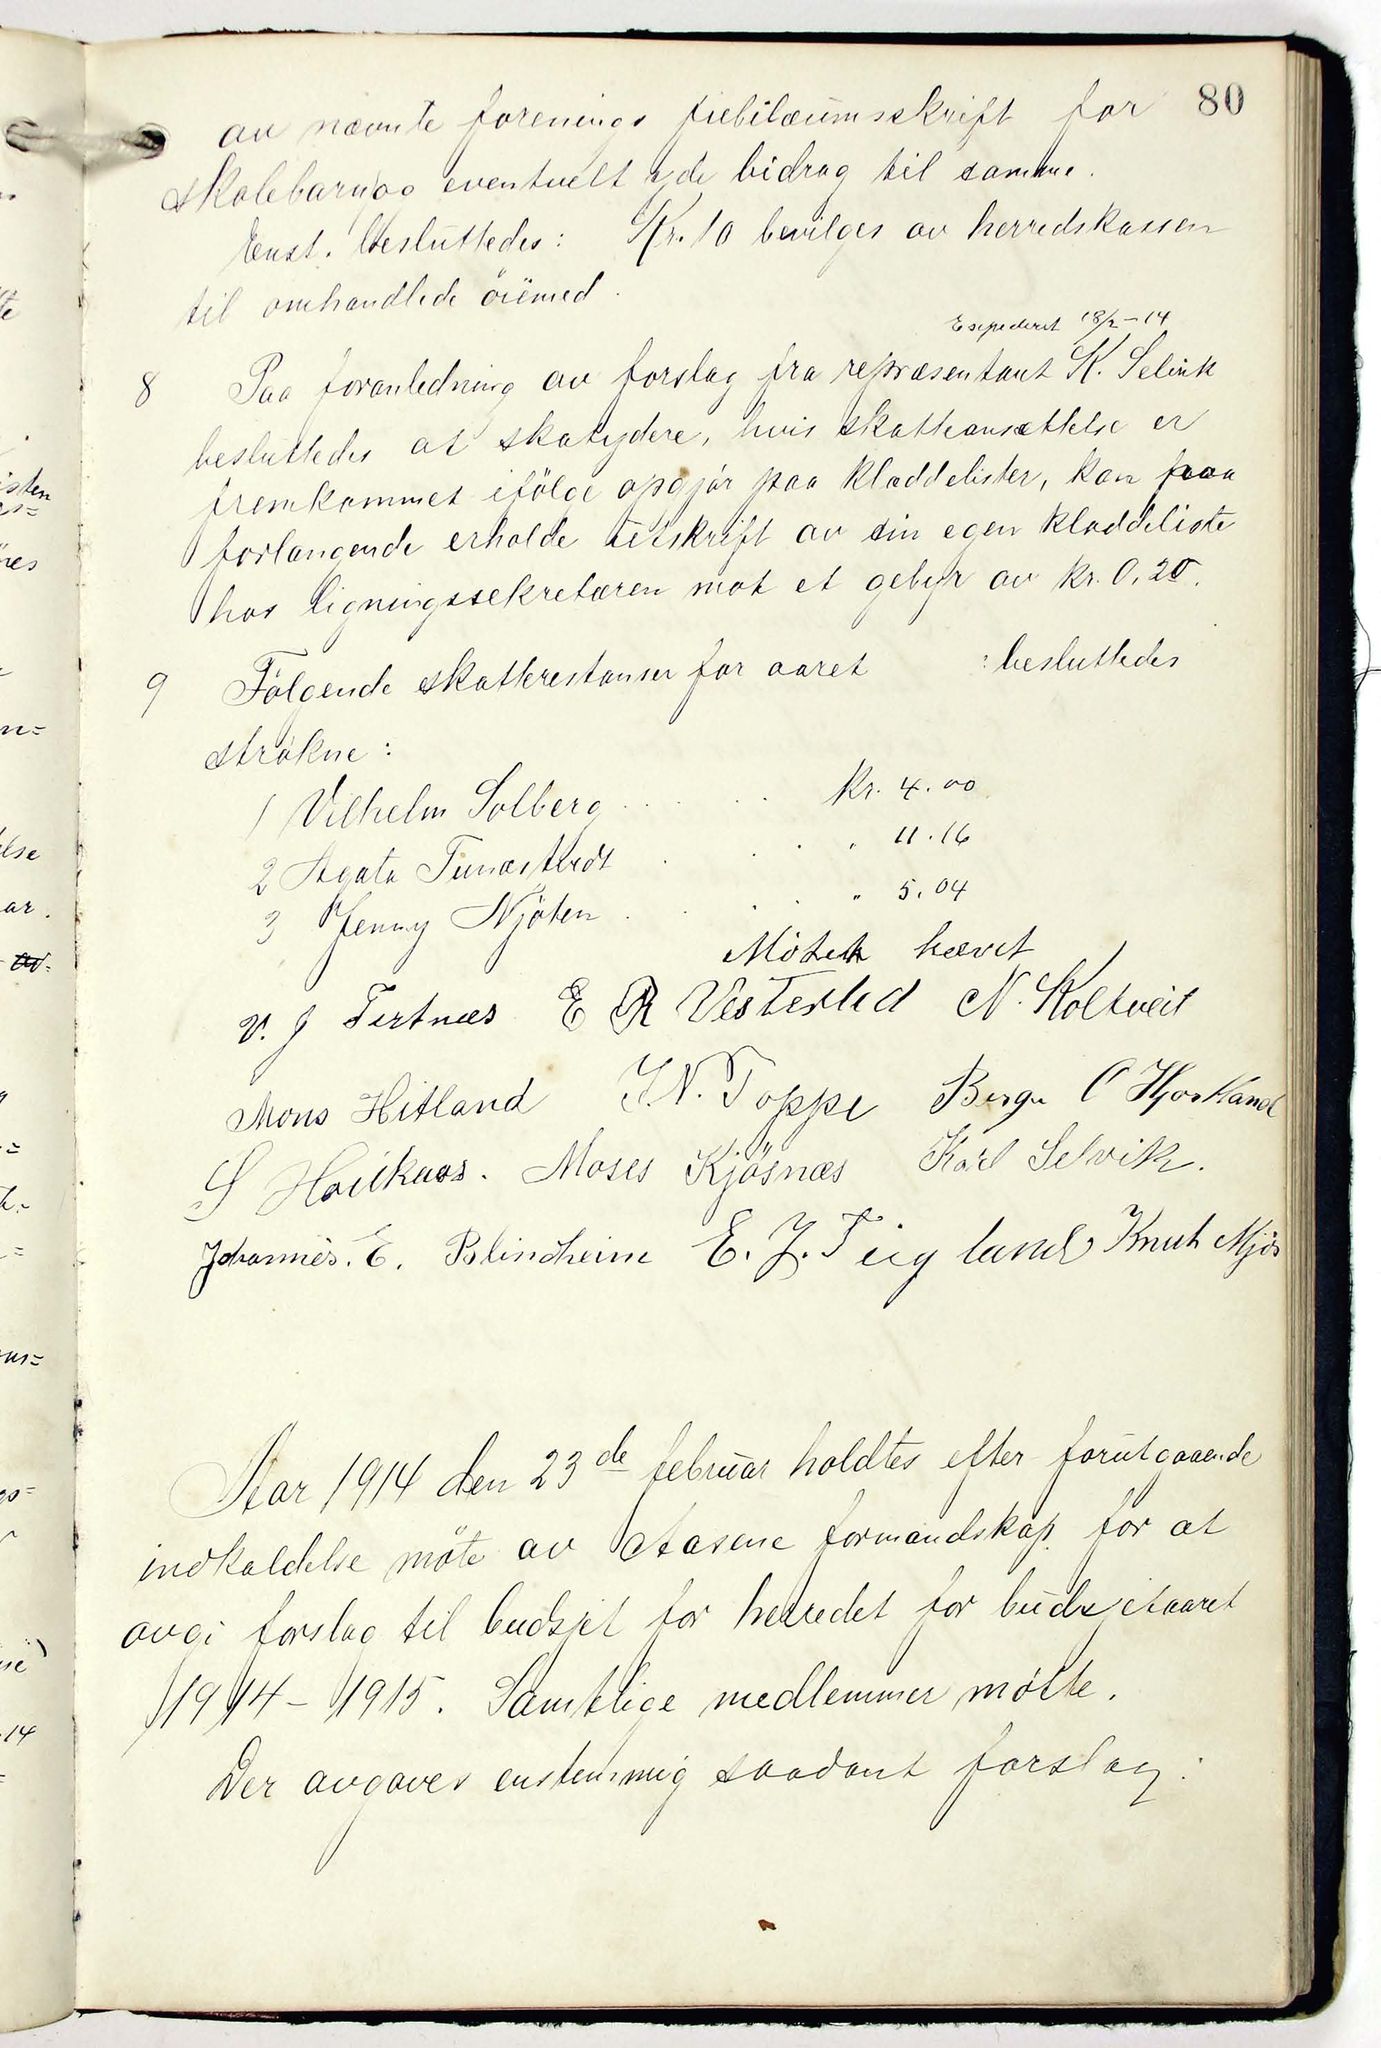 80
av nævnte forenings jubilæumsskrift for
skolebarn og eventuelt yde bidrag til samme.
Enst. besluttedes: Kr. 10 bevilges av herredskassen
til omhandlede öiemed.
Expederet 18/2-14
8 Paa foranledning av forslag fra repræsentant K. Selvik
besluttedes at skatydere, hvis skatteansættelse er
fremkommet ifölge opgjør paa kladdelister, kan paa
forlangende erholde utskrift av sin egen kladdeliste
hos ligningssekretæren mot et gebyr av kr. 0,20.
9 Følgende skatterestanser for aaret : besluttedes
strökne:
1 Vilhelm Solberg . . . . kr. 4.00
2 Agata . . . . " 11.16
3 Jenny Njöten . . . . " 5.04
Mötet hævet
V. J Tertnæs E R Vesterlid N. Koltveit
Mons Hitland J. N. Toppe Berge O Hjorkland
S Moses Kjösnæs Karl Selvik.
Johannes. E. Blindheim E. J. Teigland Knut Mjøs
Aar 1914 den 23de februar holdtes efter forutgaaende
indkaldelse möte av Aasene formandskap for at
avgi forslag til budsjet for herredet for budsjetaaret
1914-1915. Samtlige medlemmer mötte.
Der avgaves enstemmig saadant forslag: